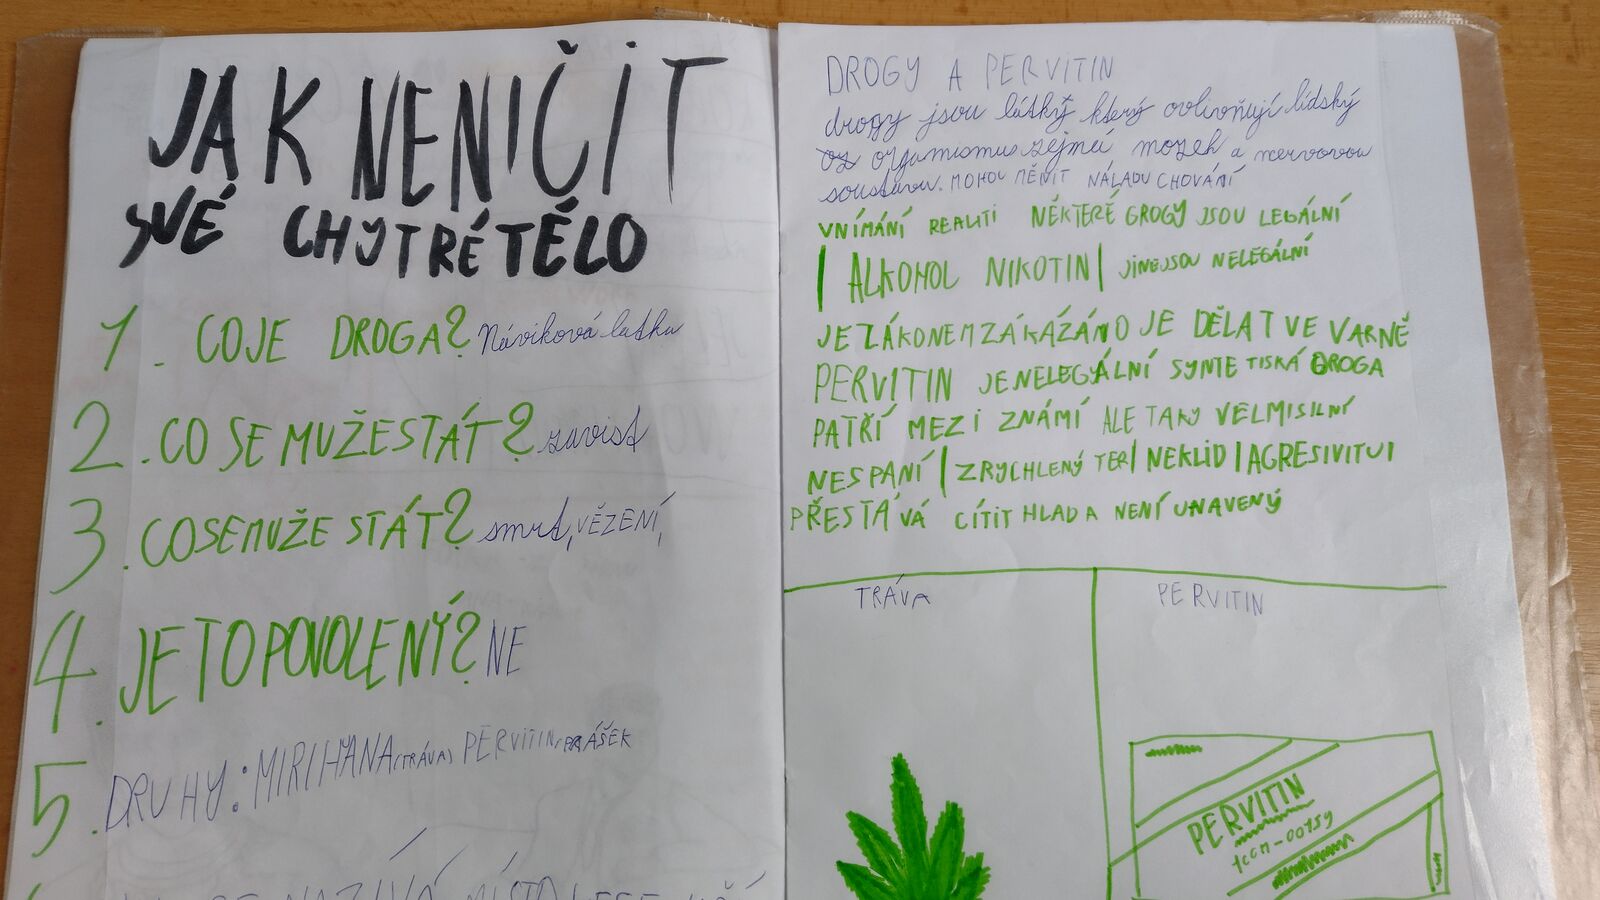 JAK NENIČIT
SVÉ CHYTRÉ TĚLO
1. CO JE DROGA? Náviková latka
2. CO SE MUŽE STÁT? zavist
3. CO SE MUŽE STÁT? smrt, VĚZENÍ,
4. JE TO POVOLENÝ? NE
5. DRUHY: MIRIHANA (TRÁVA) PERVITIN, PRÁŠEK
SE NAZÍVÁ MÍSTO
DROGY A PERVITIN
drogy jsou látky který ovlivňují lidský
organismus zejmá mozek a nervovou
soustavu. MOHOU MĚNIT NÁLADU CHOVÁNÍ
VNÍMÁNÍ REALITI NĚKTERÉ GROGY JSOU LEGÁLNÍ
| ALKOHOL NIKOTIN | JINE JSOU NELEGÁLNÍ
JE ZÁKONEM ZAKÁZÁNO JE DĚLAT VE VARNĚ
PERVITIN JE NELEGÁLNÍ SYNTETISKÁ DROGA
PATŘÍ MEZI ZNÁMÍ ALE TAKY VELMI SILNÍ
NESPANÍ | ZRYCHLENÝ TEP | NEKLID | AGRESIVITU |
PŘESTÁVÁ CÍTIT HLAD A NENÍ UNAVENÝ
TRÁVA
PERVITIN
PERVITIN
1CCM-00159